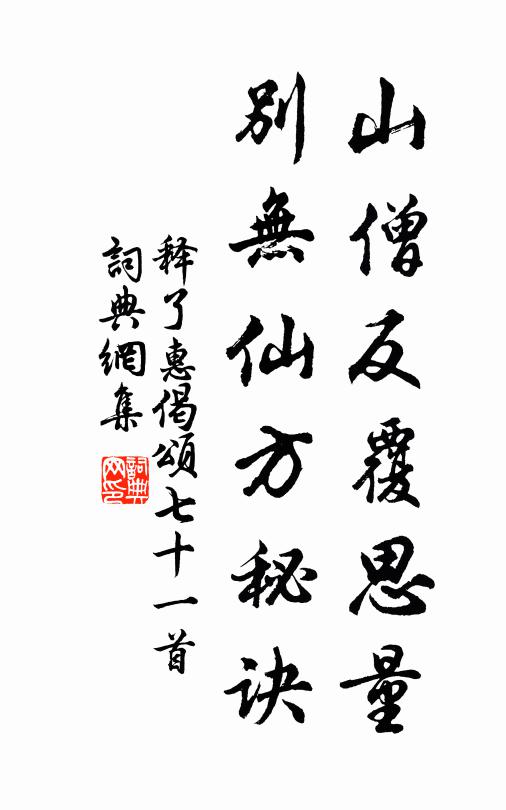 山僧反覆思量
別無仙方秘訣
释了惠偈頌七十一首
詞典網集
詞典网印